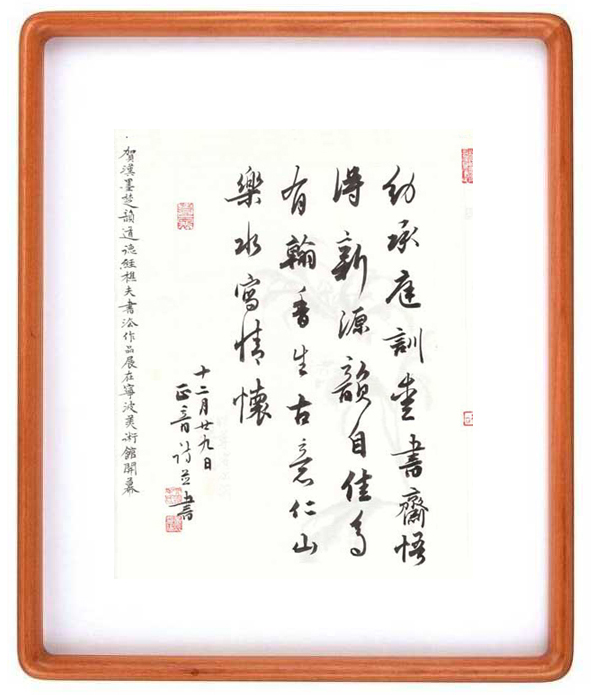 幼承庭訓愛書齋悟
得新源韻自佳為
有翰香生古意仁山
樂水寫情懷
十二月廿九日
正音詩並書
賀漢墨楚韻道德經樵夫書法作品展在寧波美術館開幕